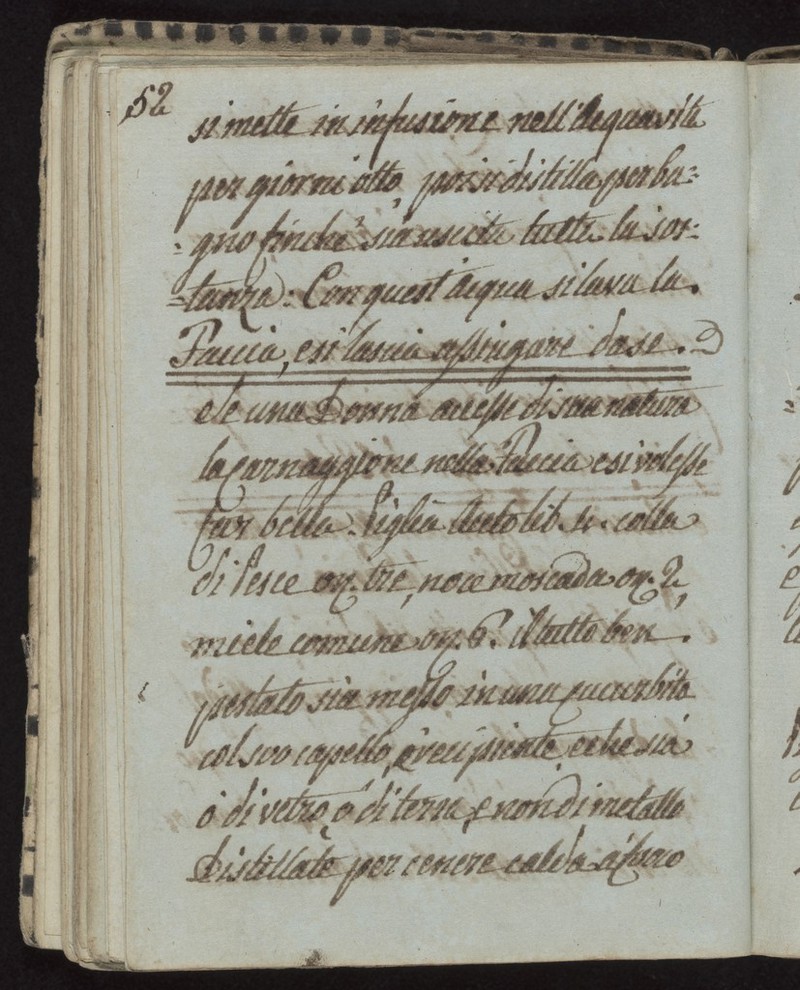 52
si mette in infusione nell'Acquavita
per giorni otto, poi si distilla per ba=
=gno finché sia uscita tutta la sos=
=tanza: Con quest'acqua si lava la
Faccia, e si lascia assiugare da se.
e Se una Donna avesse di sua natura
la carnaggione nella Faccia e si volesse
far bella. Piglia Aceto lib. 4. colla
di Pesce on. tre, noce moscada on. 2,
miele comune on. 6. il tutto ben
pestato sia messo in una cucurbita
col suo capello, e recipiente, e che sia
ó di vetro, ó di terra, e non di metallo
Distillate per cenere calda á fuoco